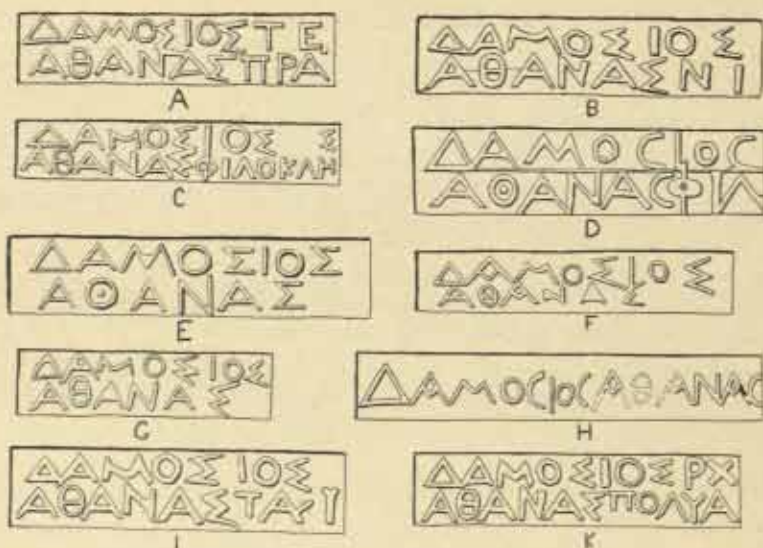 ΔΑΜΟΣΙΟΣΤΕ
ΑΘΑΝΑΣΠΡΑ
A
ΔΑΜΟΣΙΟΣ
ΑΘΑΝΑΣΝΙ
B
ΔΑΜΟΣΙΟΣ Σ
ΑΘΑΝΑΣΦΙΛΟΚΛΗ
C
ΔΑΜΟϹΙΟϹ
ΑΘΑΝΑϹΦΙΛ
D
ΔΑΜΟΣΙΟΣ
ΑΘΑΝΑΣ
E
ΔΑΜΟΣΙΟΣ
ΑΘΑΝΑΣ
F
ΔΑΜΟΣΙΟΣ
ΑΘΑΝΑΣ
G
ΔΑΜΟϹΙΟϹΑΘΑΝΑϹ
H
ΔΑΜΟΣΙΟΣ
I
ΔΑΜΟΣΙΟΣΡΧ
ΑΘΑΝΑΣΠΟΛΥΑ
K